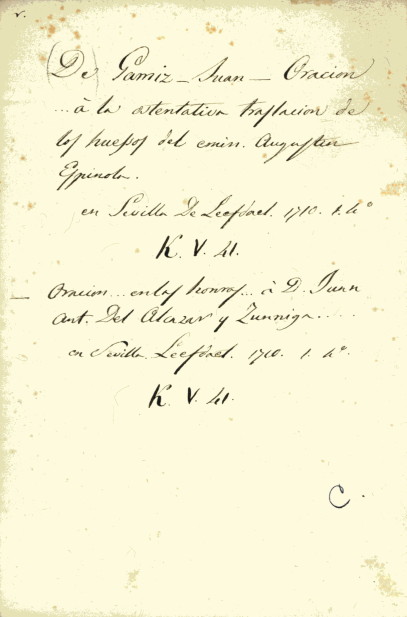 v.
(De) Gamiz - Juan - Oracion
... à la ostentativa traslacion de
los huesos del emin. Augustin
Espinola.
en Sevilla De Leefdael. 1710. 1. 4º
K. V. 41.
— Oracion ... en las honras ... à D. Juan
Ant. Del Alcazar y Zunniga ....
en Sevilla. Leefdael. 1710. 1. 4º.
K. V. 41.
C.